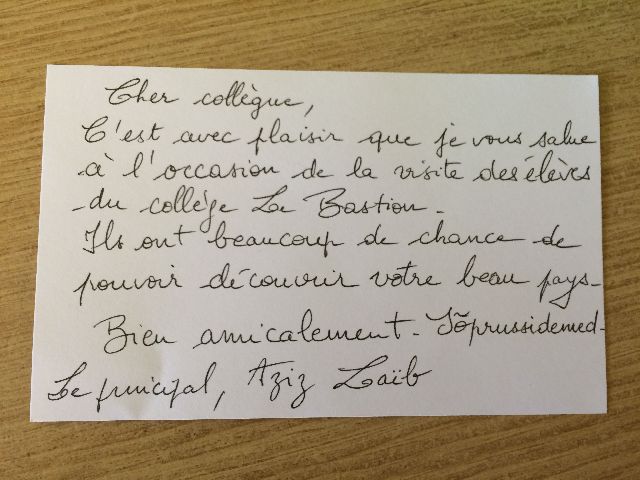 Cher collègue,
C'est avec plaisir que je vous salue
à l'occasion de la visite des élèves
du collège Le Bastion.
Ils ont beaucoup de chance de
pouvoir découvrir votre beau pays.
Bien amicalement. Sõprussidemed.
Le principal, Aziz Laïb